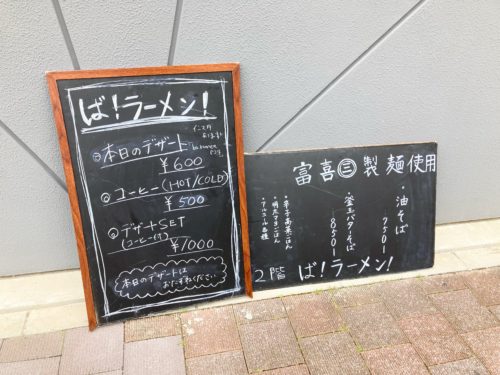 ば!ラーメン!
①本日のデザート
¥600
②コーヒー(HOT/COLD)
¥500
③デザートSET
(コーヒー付)
¥1000
本日のデザートは
おたずねください
富喜㊂製麺使用
・油そば
750
・釜玉バタそば
850
・辛子高菜ごはん
・明太マヨごはん
・アルコール各種
2階 ば!ラーメン!